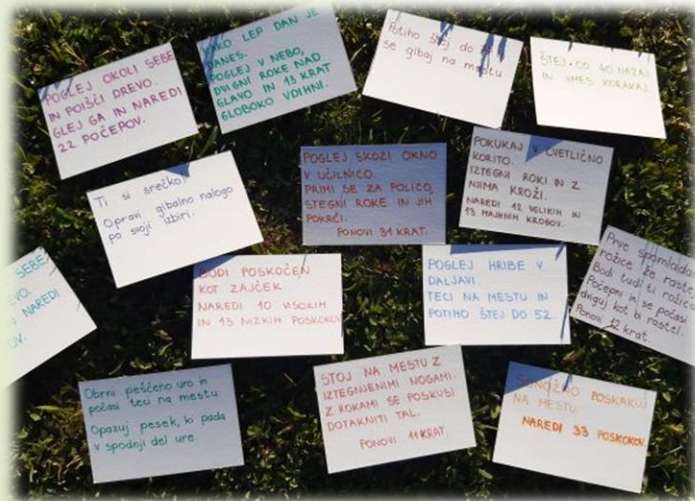 POGLEJ OKOLI SEBE
IN POIŠČI DREVO.
GLEJ GA IN NAREDI
22 POČEPOV.
KAKO LEP DAN JE
DANES.
POGLEJ V NEBO,
DVIGNI ROKE NAD
GLAVO IN 13 KRAT
GLOBOKO VDIHNI.
Potiho štej do
se gibaj na mestu.
ŠTEJ OD 40 NAZAJ
IN VMES KORAKAJ.
Ti si srečko!
Opravi gibalno nalogo
po svoji izbiri.
POGLEJ SKOZI OKNO
V UČILNICO.
PRIMI SE ZA POLICO,
STEGNI ROKE IN JIH
POKRČI.
PONOVI 31 KRAT.
POKUKAJ V CVETLIČNO
KORITO.
IZTEGNI ROKI IN Z
NJIMA KROŽI.
NAREDI 12 VELIKIH IN
13 MAJHNIH KROGOV.
SEBE
VO.
NAREDI
OV.
BODI POSKOČEN
KOT ZAJČEK.
NAREDI 10 VISOKIH
IN 15 NIZKIH POSKOKOV.
POGLEJ HRIBE V
DALJAVI.
TECI NA MESTU IN
POTIHO ŠTEJ DO 52.
Prve spomladanske
rožice že raste
Bodi tudi ti rožica
Počepni in se počasi
dviguj, kot bi rastel.
Ponovi 12 krat.
Obrni peščeno uro in
počasi teci na mestu.
Opazuj pesek, ki pada
v spodnji del ure.
STOJ NA MESTU Z
IZTEGNJENIMI NOGAMI.
Z ROKAMI SE POSKUSI
DOTAKNITI TAL.
PONOVI 11 KRAT.
SONOŽNO POSKAKUJ
NA MESTU.
NAREDI 33 POSKOKOV.